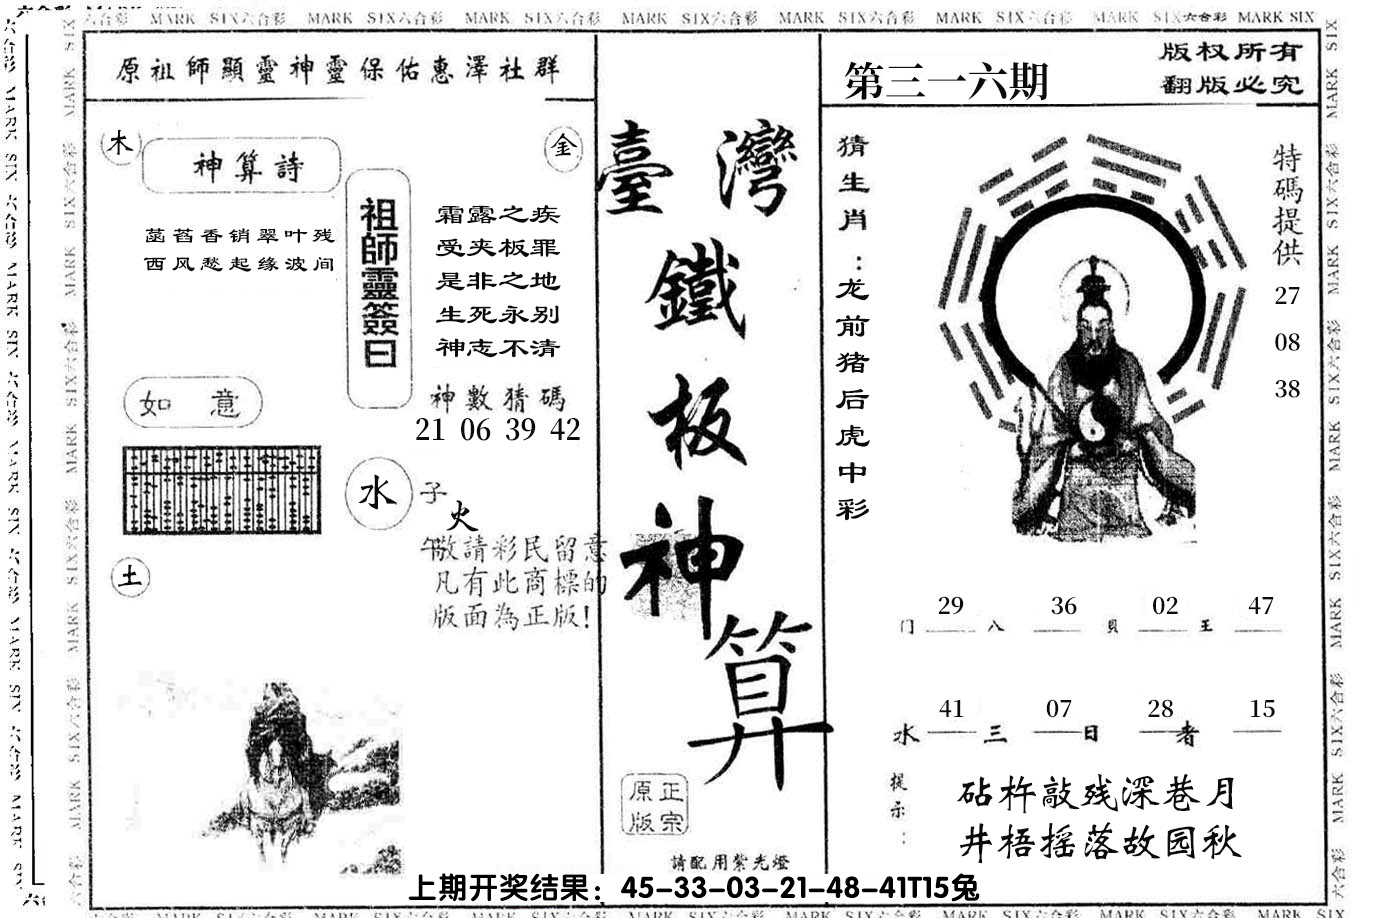 MARK SIX六合彩 MARK SIX六合彩 MARK SIX六合彩 MARK SIX六合彩 MARK SIX六合彩 MARK SIX六合彩 MARK SIX六合彩 MARK SIX
原祖師顯靈神靈保佑惠澤社群
木
金
神算詩
菡萏香销翠叶残
西风愁起缘波间
祖師靈簽曰
霜露之疾
受夹板罪
是非之地
生死永别
神志不清
神數猜碼
21 06 39 42
如意
水
子
火
午
土
敬請彩民留意
凡有此商標的
版面為正版!
臺灣
鐵
板
神
算
正宗
原版
請配用紫光燈
第三一六期
版权所有
翻版必究
猜生肖:龙前猪后虎中彩
特碼提供
27
08
38
门 29 八 36 貝 02 王 47
水 41 三 07 日 28 者 15
提示:
砧杵敲残深巷月
井梧摇落故园秋
上期开奖结果：45-33-03-21-48-41T15兔